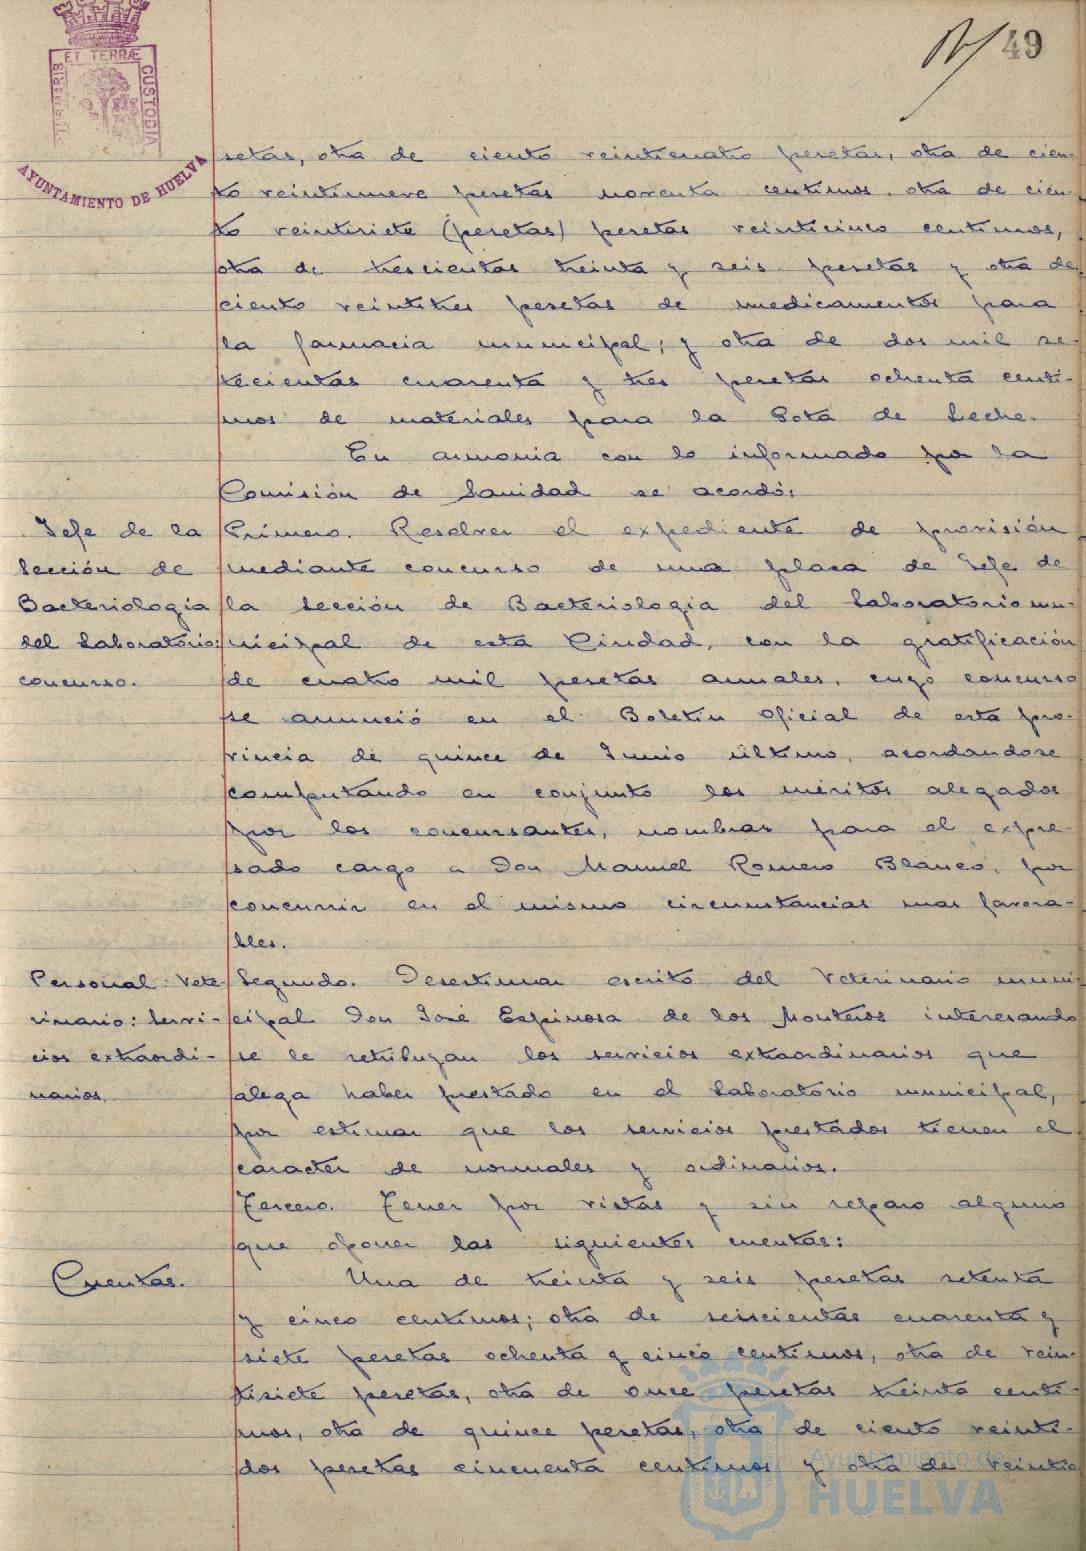 49
ET TERRÆ
CUSTODIA
AYUNTAMIENTO DE HUELVA
setas, otra de ciento veinticuatro pesetas, otra de cien-
to veintinueve pesetas noventa centimos, otra de cien-
to veintisiete (pesetas) pesetas veinticinco centimos,
otra de trescientas treinta y seis pesetas y otra de
ciento veintitres pesetas de medicamentos para
la farmacia municipal; y otra de dos mil se-
tecientas cuarenta y tres pesetas ochenta centi-
mos de materiales para la Gota de Leche.
En armonia con lo informado por la
Comisión de Sanidad se acordó:
Jefe de la
Sección de
Bacteriologia
del Laboratorio:
concurso.
Primero. Resolver el expediente de provisión
mediante concurso de una plaza de Jefe de
la Sección de Bacteriologia del Laboratorio mu-
nicipal de esta Ciudad, con la gratificación
de cuatro mil pesetas anuales, cuyo concurso
se anunció en el Boletin Oficial de esta pro-
vincia de quince de Junio último, acordandose
computando en conjunto los méritos alegados
por los concursantes, nombrar para el expre-
sado cargo a Don Manuel Romero Blanco, por
concurrir en el mismo circunstancias mas favora-
bles.
Personal: Vete-
rinario: Servi-
cios extraordi-
narios.
Segundo. Desestimar escrito del Veterinario muni-
cipal Don José Espinosa de los Monteros interesando
se le retribuyan los servicios extraordinarios que
alega haber prestado en el Laboratorio municipal,
por estimar que los servicios prestados tienen el
caracter de normales y ordinarios.
Tercero. Tener por vistas y sin reparo alguno
que oponer las siguientes cuentas:
Cuentas.
Una de treinta y seis pesetas setenta
y cinco centimos; otra de seiscientas cuarenta y
siete pesetas ochenta y cinco centimos, otra de vein-
tisiete pesetas, otra de once pesetas treinta centi-
mos, otra de quince pesetas, otra de ciento veinti-
dos pesetas cincuenta centimos y otra de veintio
Ayuntamiento de
HUELVA